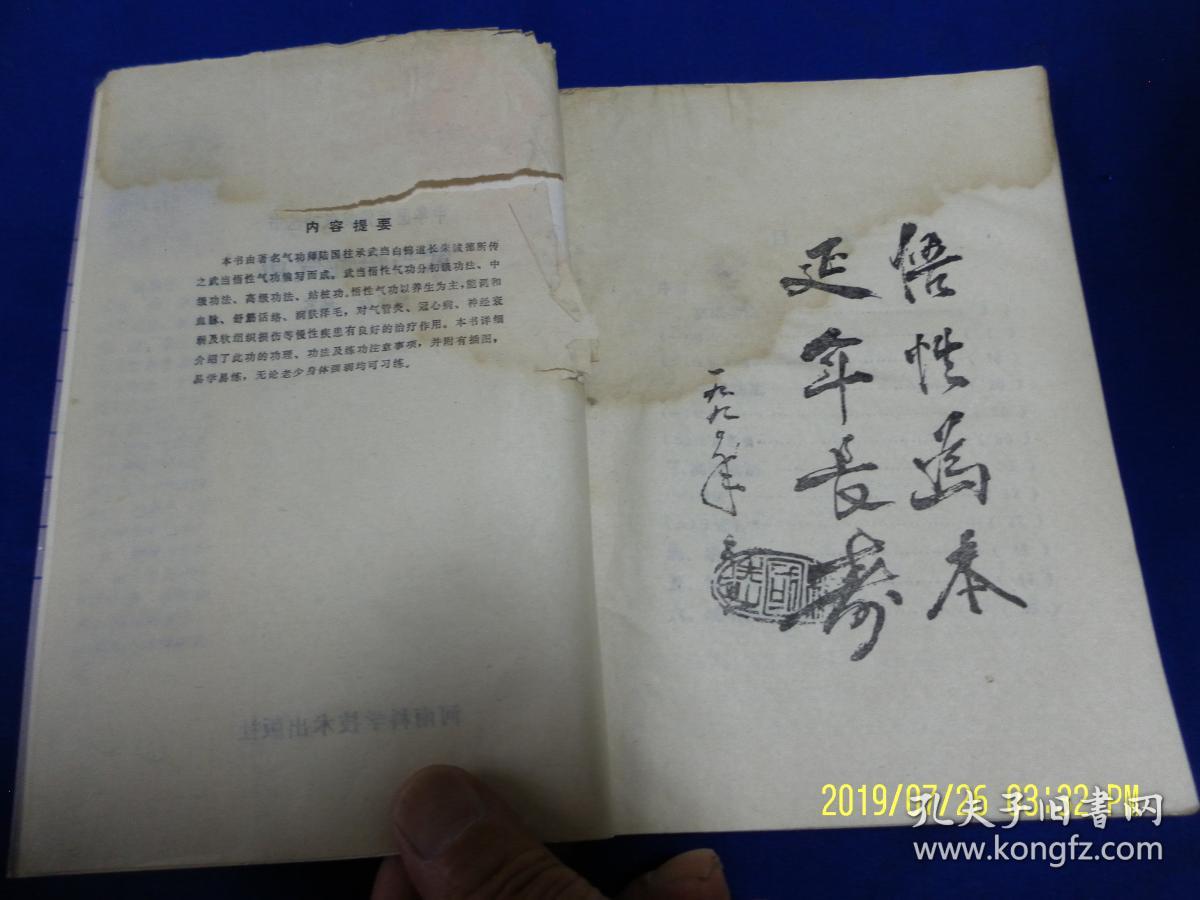 内容提要
本书由著名气功师陆国柱承武当白锦道长朱诚德所传
之武当悟性气功编写而成。武当悟性气功分初级功法、中
级功法、高级功法、站桩功。悟性气功以养生为主，能调和
血脉、舒筋活络、润肤泽毛，对气管炎、冠心病、神经衰
弱及软组织损伤等慢性疾患有良好的治疗作用。本书详细
介绍了此功的功理、功法及练功注意事项，并附有插图，
易学易练，无论老少身体强弱均可习练。
河南科学技术出版社
悟性為本
延年長寿
一九九〇年
2019/07/26 03:22 PM
孔夫子旧書网
www.kongfz.com